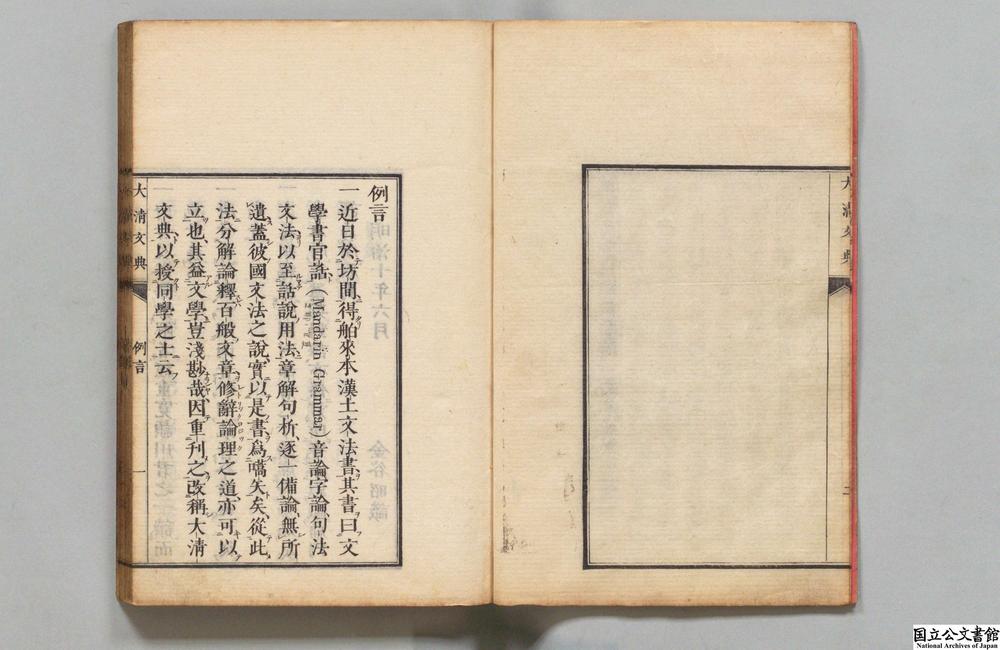 例言
一近日於坊間得舶來本漢土文法書其書曰文
學書官話(Mandarin Grammar)音論、字論、句法
文法以至話說用法、章解句析、逐一備論、無所
遺蓋彼國文法之說、實以是書爲嚆矢矣、從此
法分解論釋百般文章修辭論理之道、亦可以
立也、其益文學、豈淺尠哉因重刊之、改稱大淸
文典以授同學之士云
大淸文典
例言
一
大淸文典
二
明治十年六月
金谷昭識
国立公文書館
National Archives of Japan